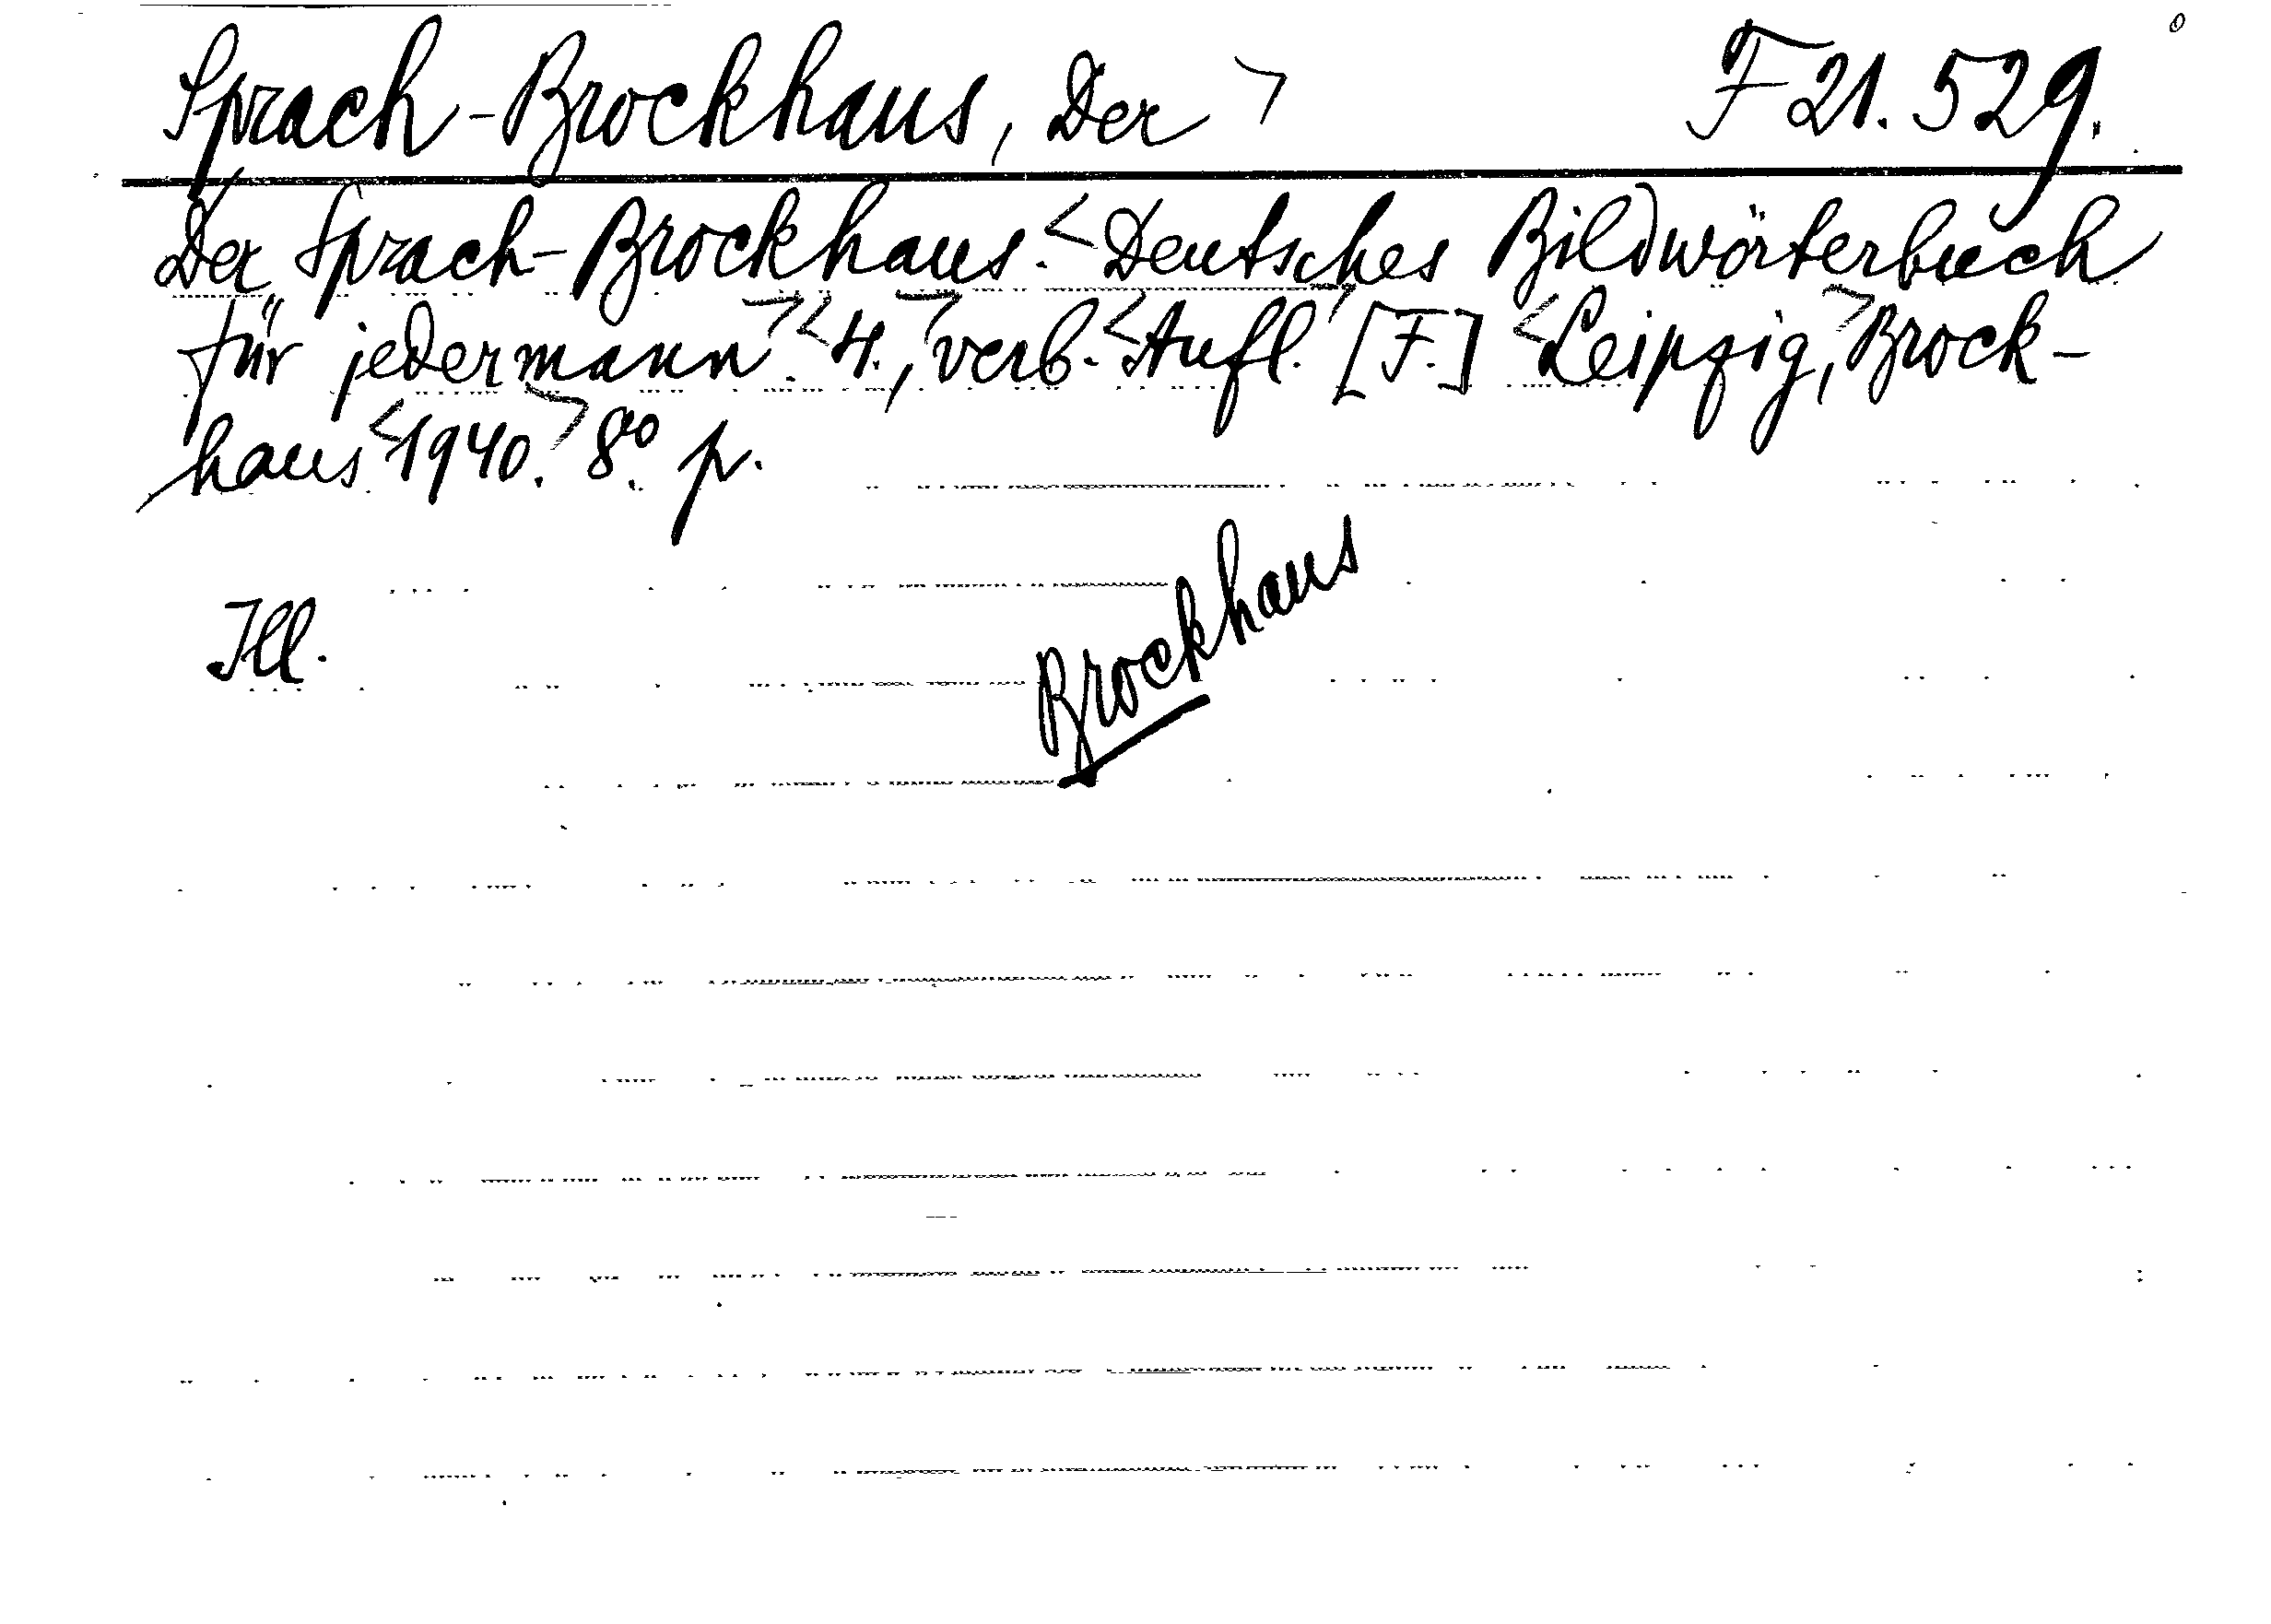 Sprach-Brockhaus, Der > F 21.529.
Der Sprach-Brockhaus. <Deutsches Bildwörterbuch
für jedermann.> <4., verb.> <Aufl.> [F.] <Leipzig,> Brock-
haus <1940.> 8º. p.
Ill.
Brockhaus